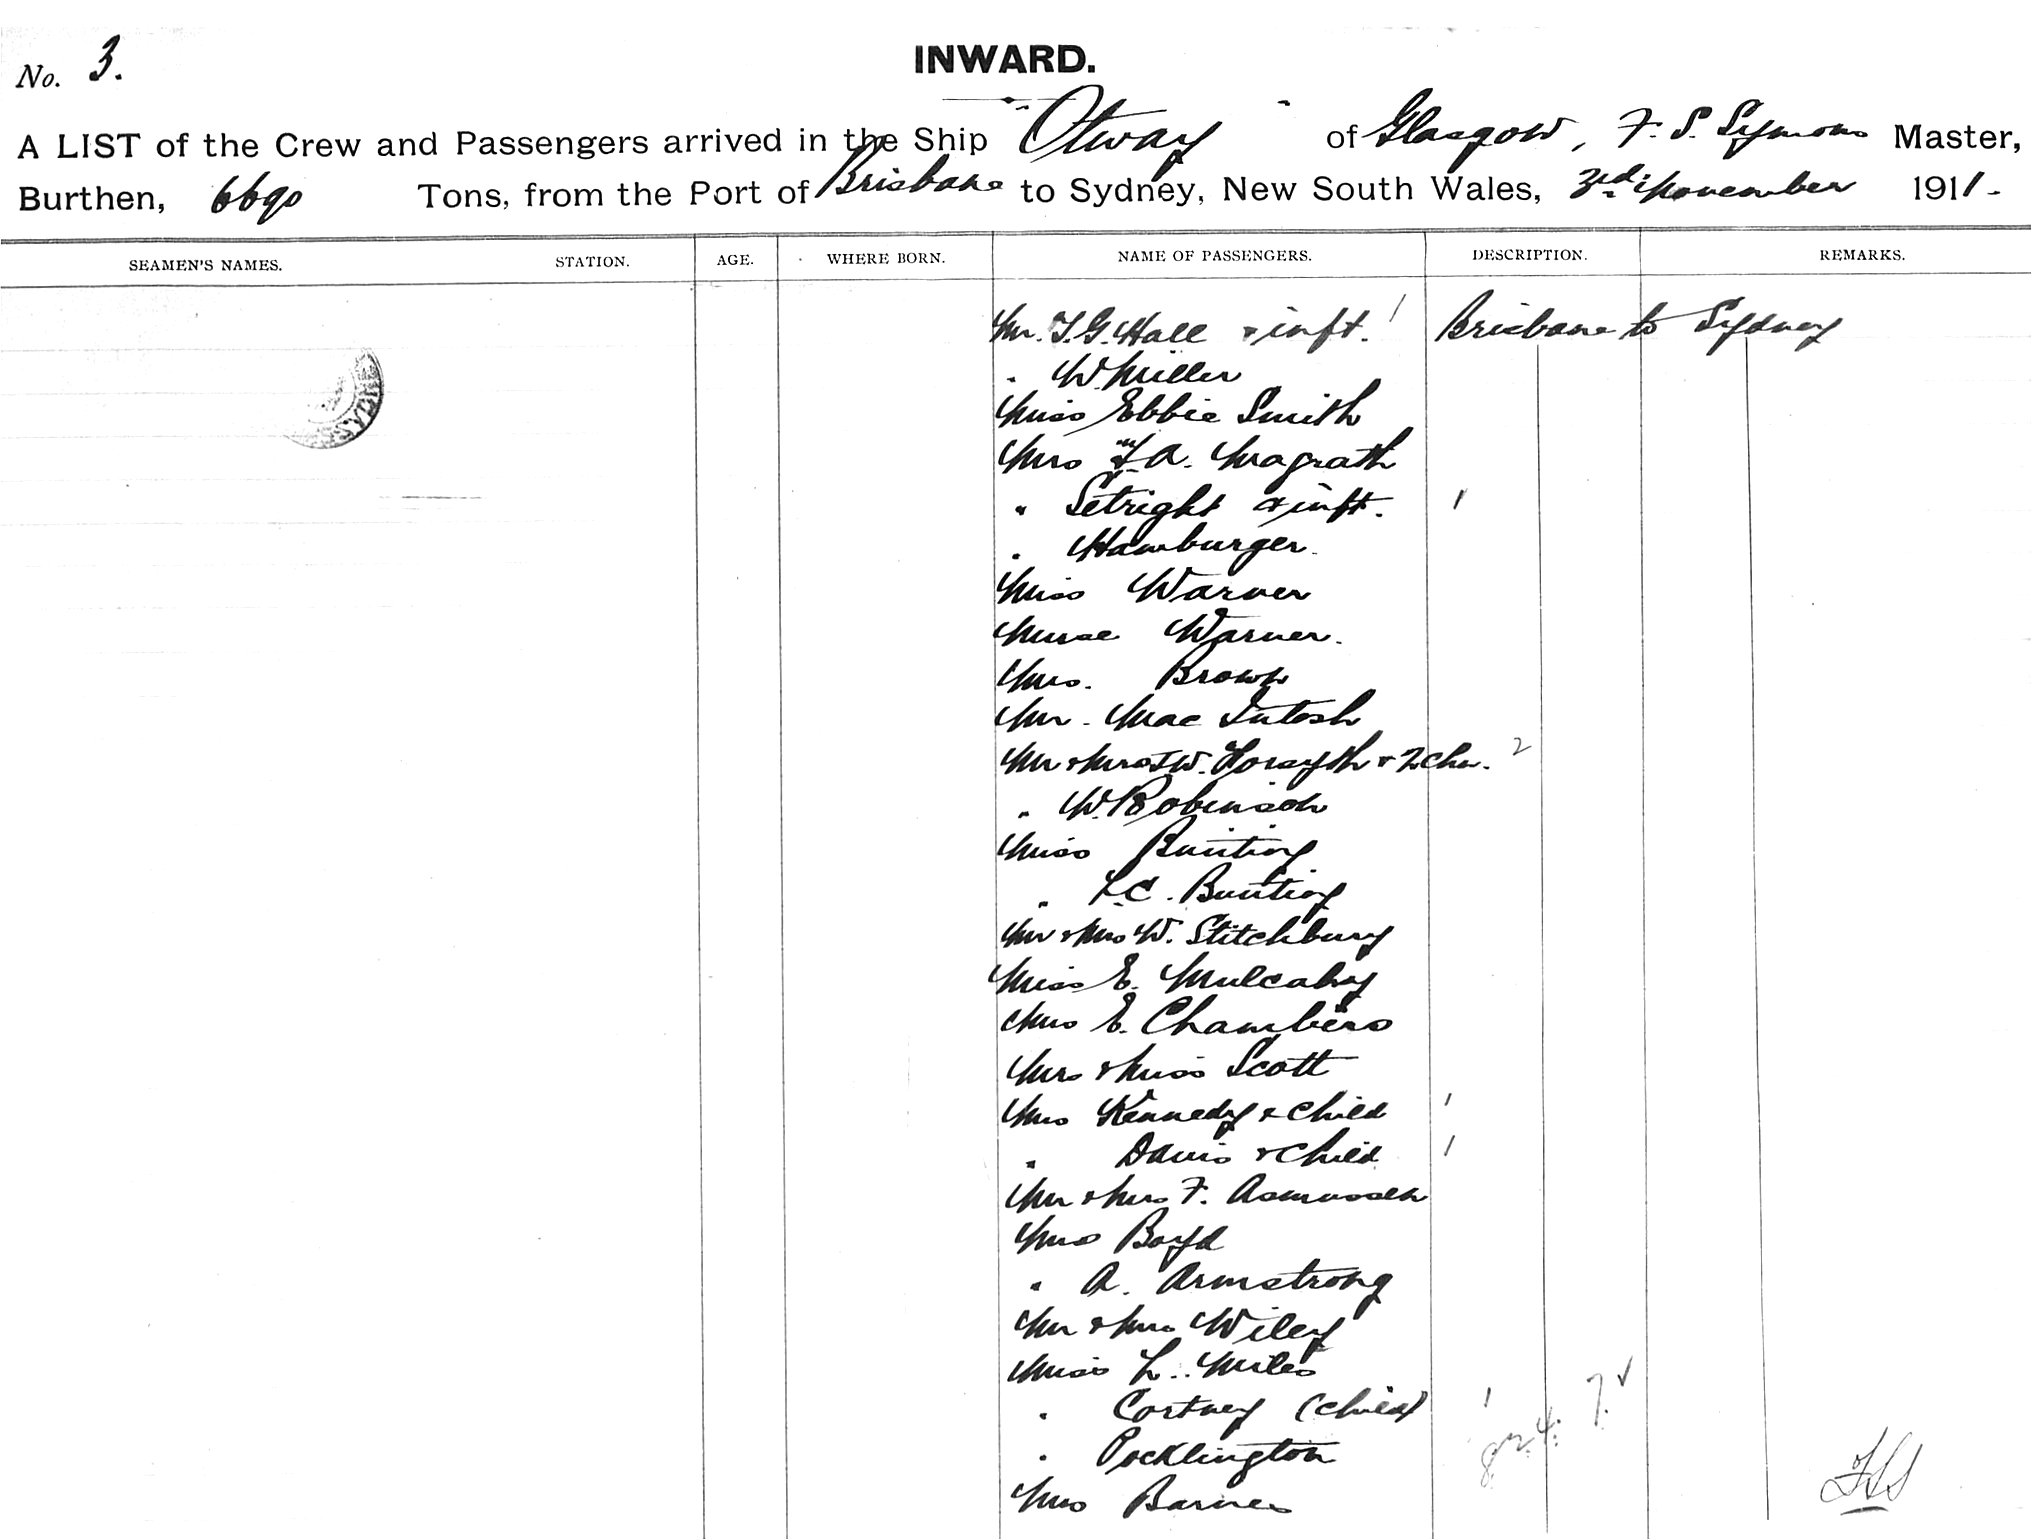 No. 3.
INWARD.
A LIST of the Crew and Passengers arrived in the Ship "Otway" of Glasgow, F. S. Symons Master,
Burthen, 6690 Tons, from the Port of Brisbane to Sydney, New South Wales, 3rd November 1911-
SEAMEN'S NAMES. STATION. AGE. WHERE BORN. NAME OF PASSENGERS. DESCRIPTION. REMARKS.
Mr. T. G. Hall & inft. 1 Brisbane to Sydney
" W. Miller
Miss Ebbie Smith
Mrs A. Magrath
" Setright & inft. 1
" Hamburger.
Miss Warner
Nurse Warner.
Mrs. Brown
Mr. Mac Intosh
Mr & Mrs J W. Forsyth & 2 chn. 2
" W. Robinson
Miss Bunting
" L.C. Bunting
Mr & Mrs W. Stitchbury
Miss E. Mulcahy
Mrs E. Chambers
Mrs & Miss Scott
Mrs Kennedy & child 1
" Davis & child 1
Mr & Mrs F. Asmussen
Mrs Boyd
" A. Armstrong
Mr & Mrs Wiley
Miss L. Miles
" Cortney (child) 1
" Pocklington
Mrs Barnes